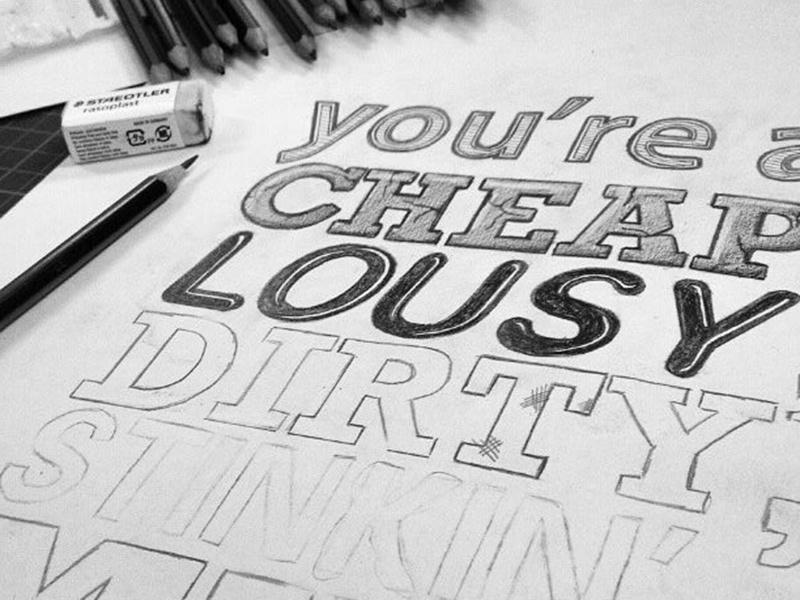 STAEDTLER
rasoplast
you're a
CHEAP
LOUSY
DIRTY,
STINKIN'